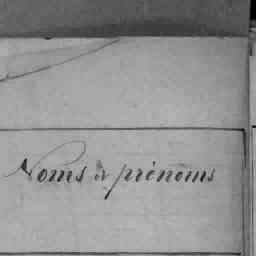 Noms & prénoms